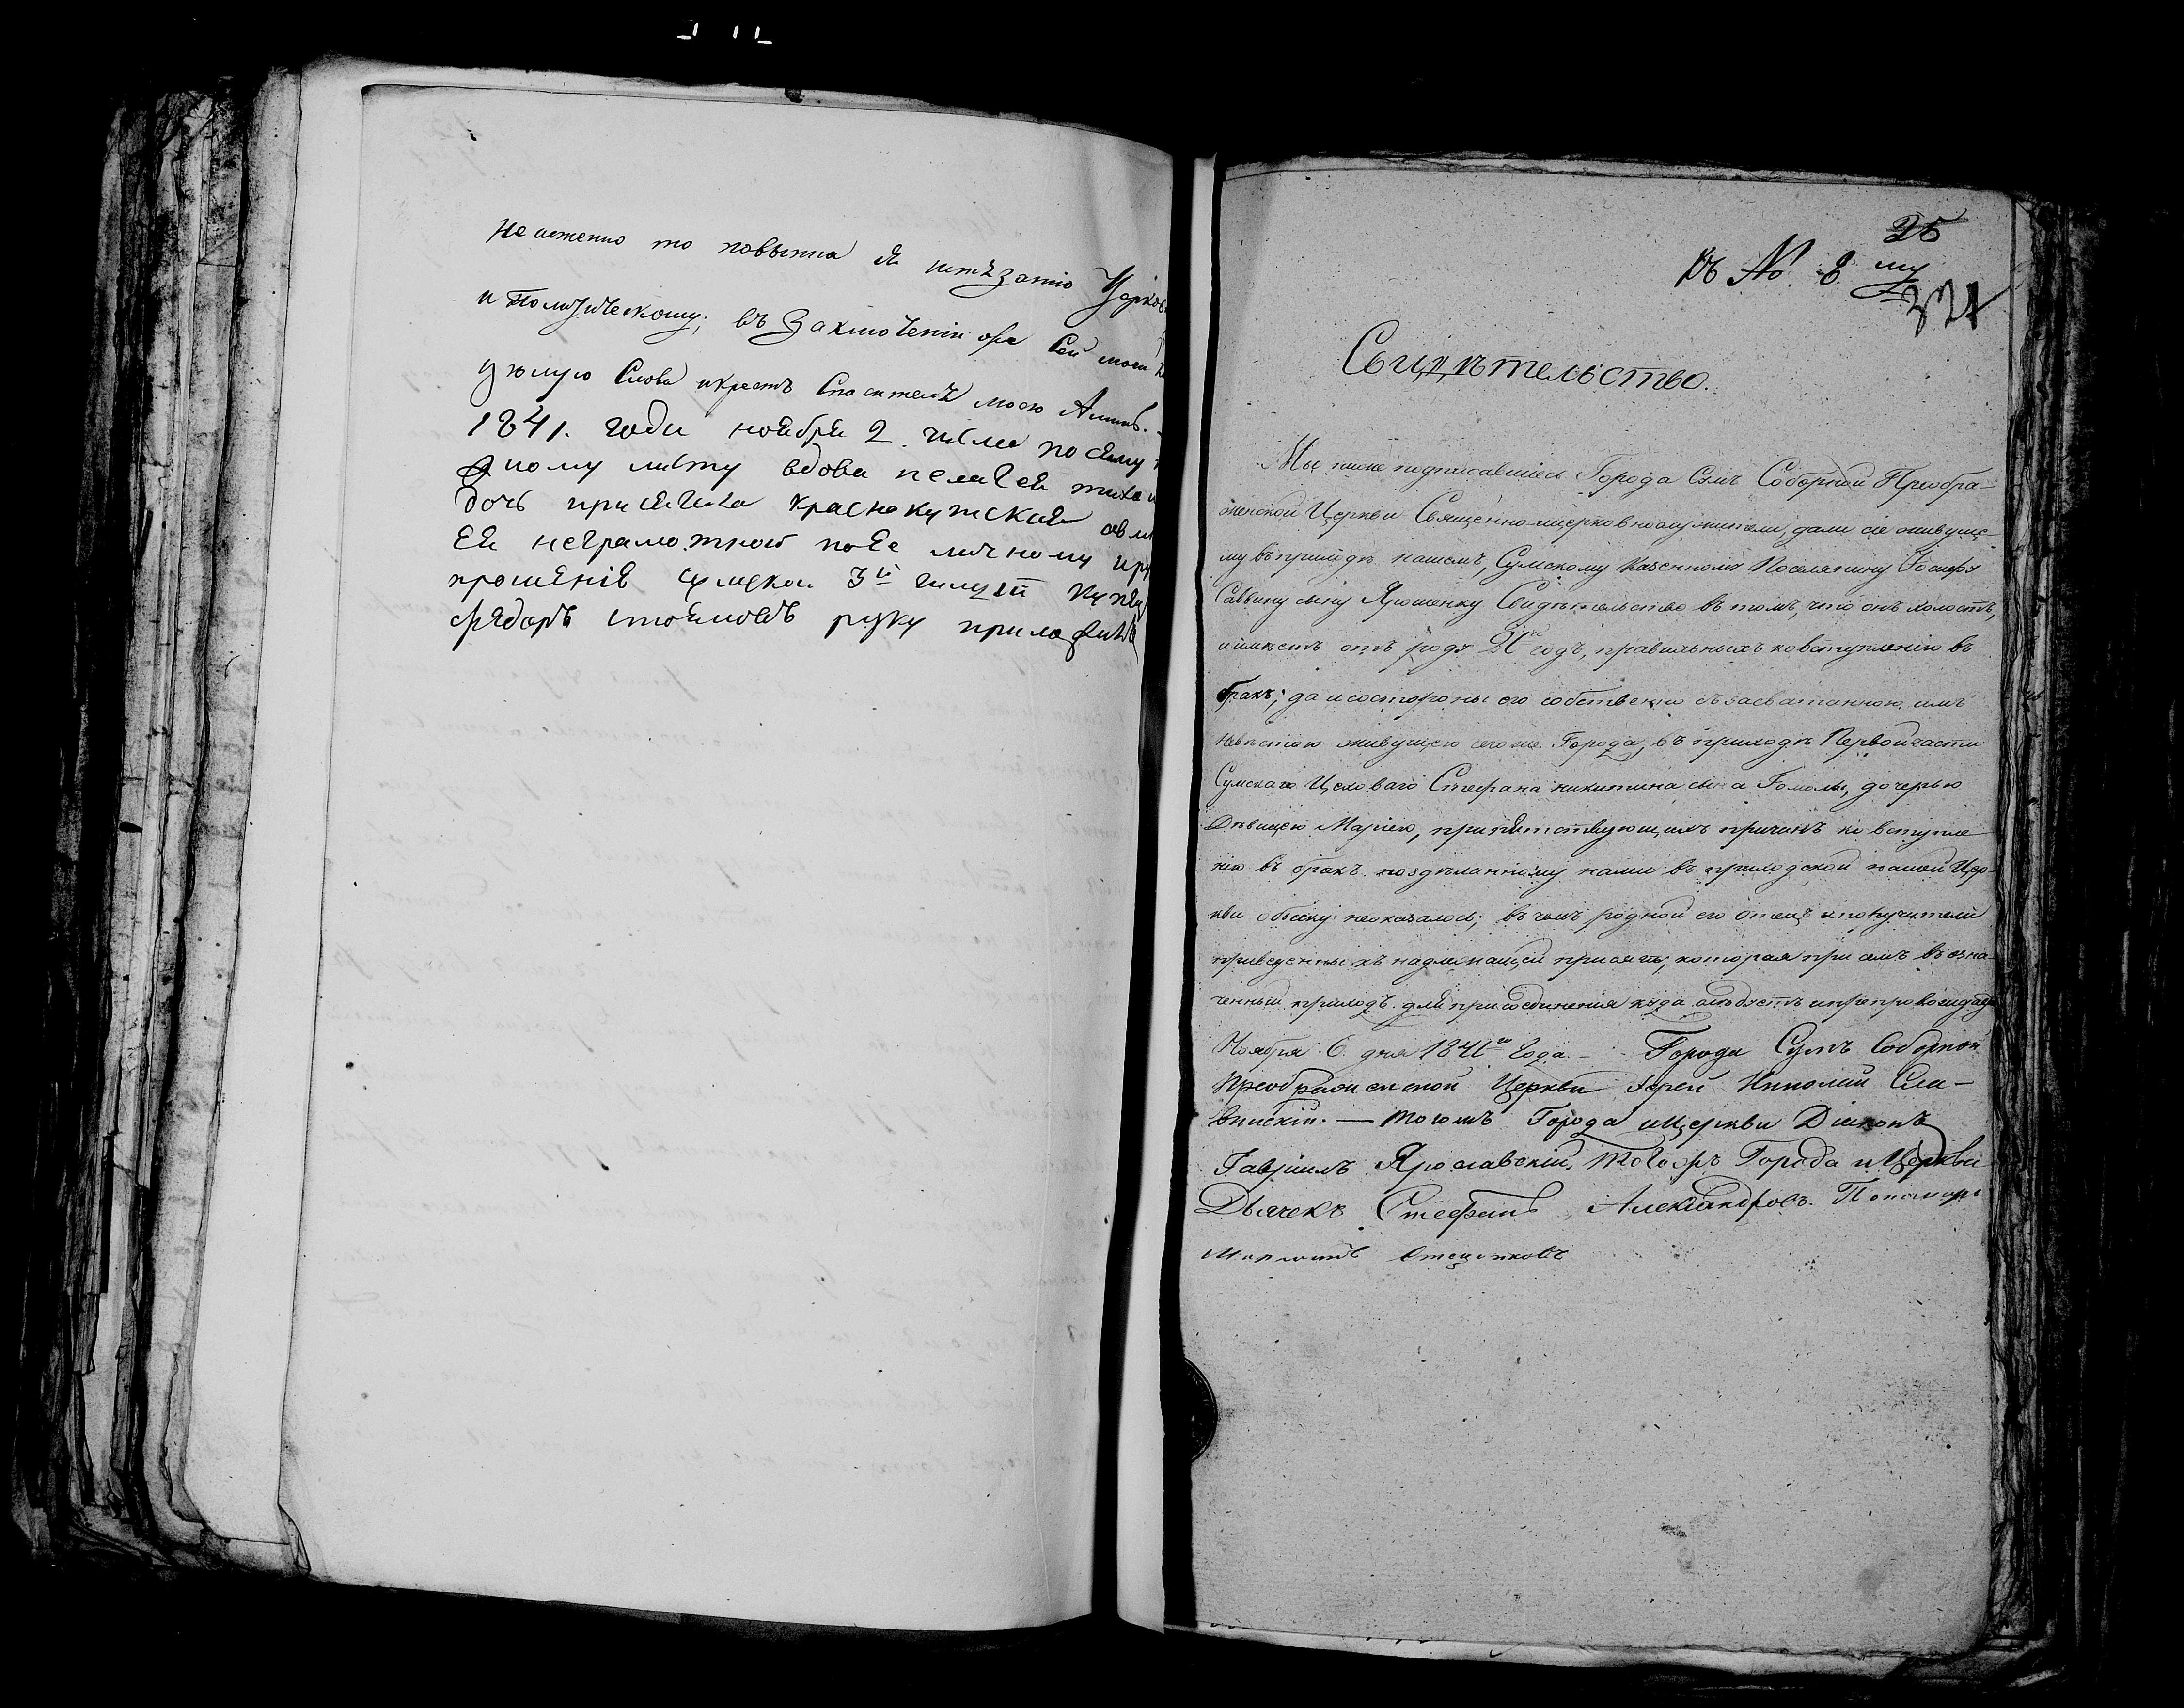 не истенно то повынна я истѣзанію Церков
и Политическому; въ Заключеніи оре Сей моей
цѣлую Слова икрестъ Спасителя моего Аминь.
1841. года ноября 2. числа по сему
ному листу вдова пелагея
дочь присягала краснокутская
ея неграмотной по Ее личному
прошенію сумской 3й гилдіи купец
руку приложилъ
25
къ № 8 му
327
Свидѣтельство.
Мы ниже подписавшіеся Города Сумъ Соборной Преобра-
женской Церкви Священно-ицерковнослужители, дали сіе живуще-
му въприходѣ нашемъ, Сумскому Казенному Поселянину Іосифу
Саввину сыну Ярошенку Свидѣтельство въ томъ, что онъ холостъ,
иимѣетъ отъ роду 21й годъ, правильныхъ ковступленію въ
бракъ; да исостороны его собственно съзасватанною имъ
невѣстою живущею сегоже Города, въ приходѣ Первойчасти
Сумскаго Цеховаго Стефана никитина сына Гомолы, дочерью
Дѣвицею Маріею, препятствующихъ причинъ ко вступле-
нію въ бракъ поздѣланному нами въ приходской нашей Цер-
кви обыску неоказалось; въ чемъ родной его Отецъ ипоручители
приведенны къ надлежащей присягѣ, которая при семъ въ озна-
ченный приходъ для присоединенія куда слѣдуетъ ипрепровождае
Ноября 6 дня 1841го Года. – Города Сумъ Соборной
Преображенской Церкви Іерей Николай Сла-
винскій. — Тогожъ Города ицеркви Діаконъ
Гавріилъ Ярославскій, Тогожъ Города и Церкви
Дьячекъ Стефанъ Александровъ. Пономарь